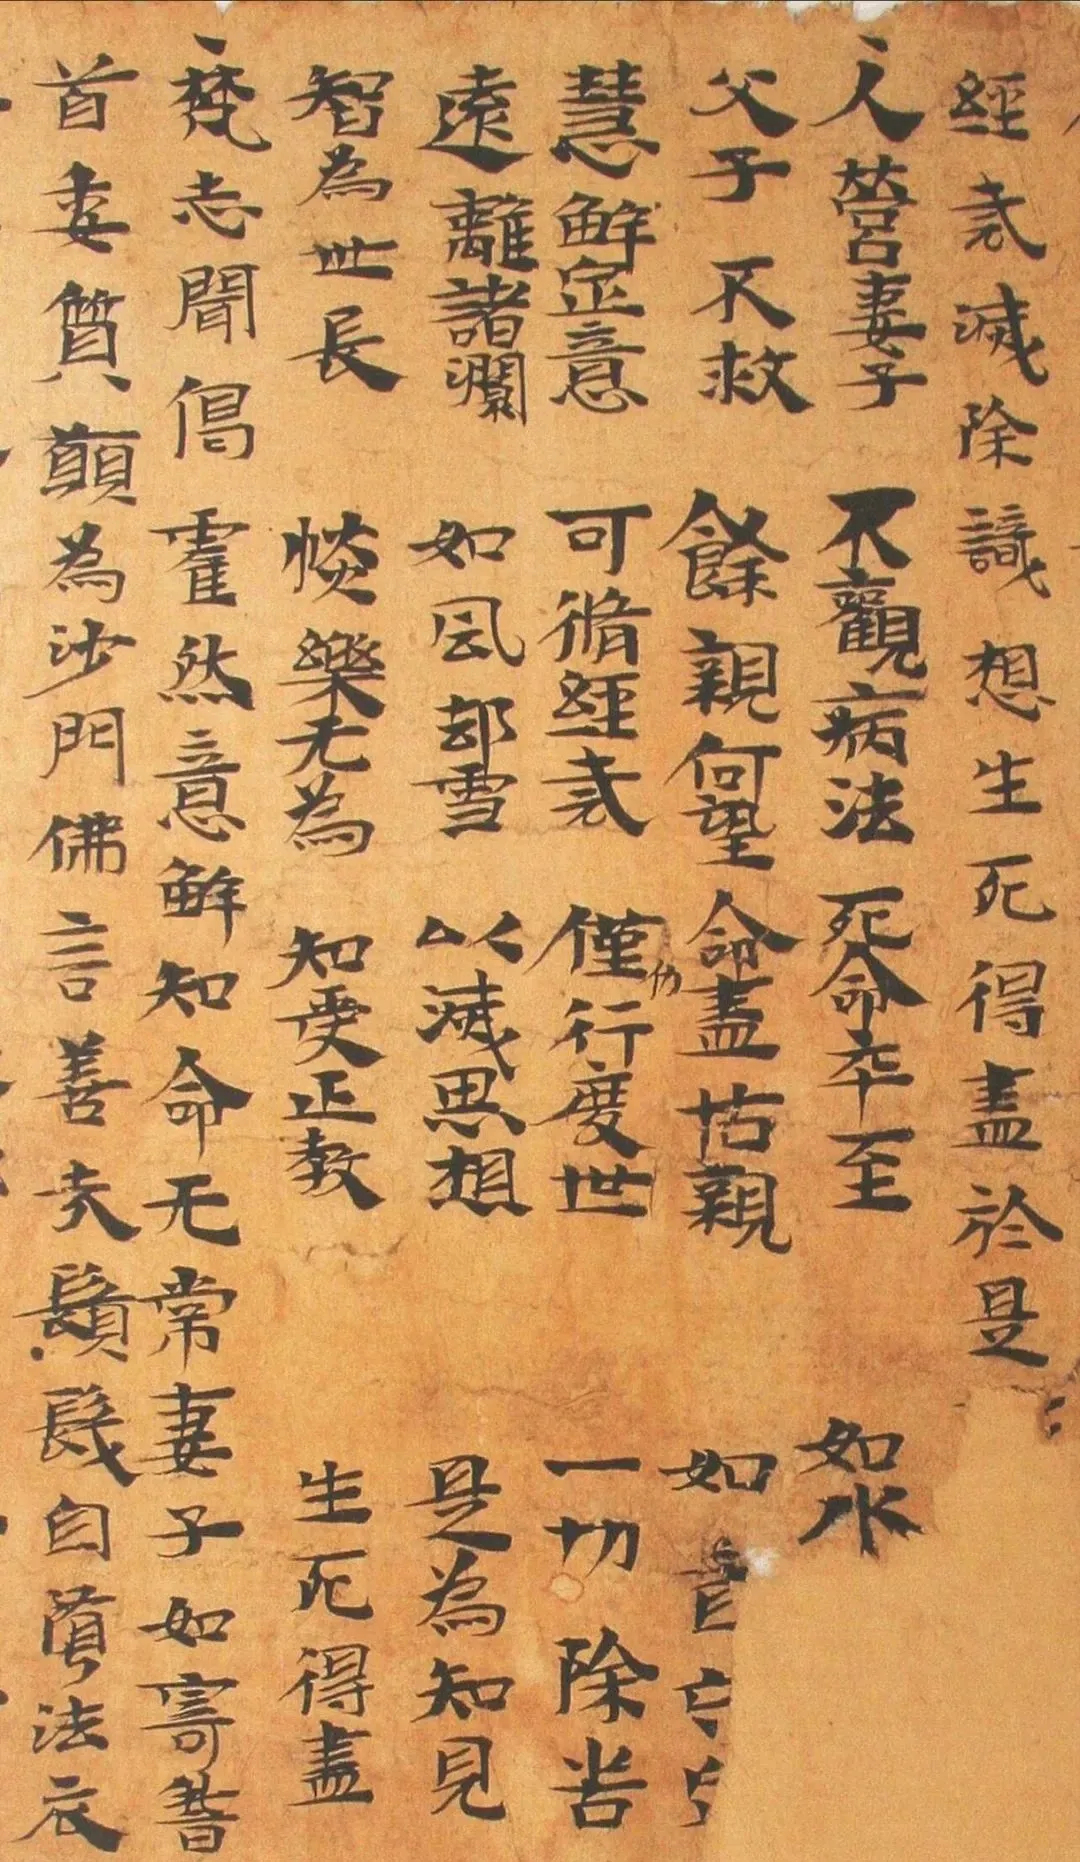 經戒滅除識想生死得盡於是
人營妻子 不觀病法 死命卒至 如水
父子不救 餘親何望 命盡怙親 如盲
慧解定意 可脩經戒 僅力行度世 一切除苦
遠離諸瀾 如風却雪 以滅思想 是為知見
智為世長 惔樂无為 知受正教 生死得盡
梵志聞偈霍然意解知命无常妻子如寄稽
首委質願為沙門佛言善哉鬚髮自墮法衣